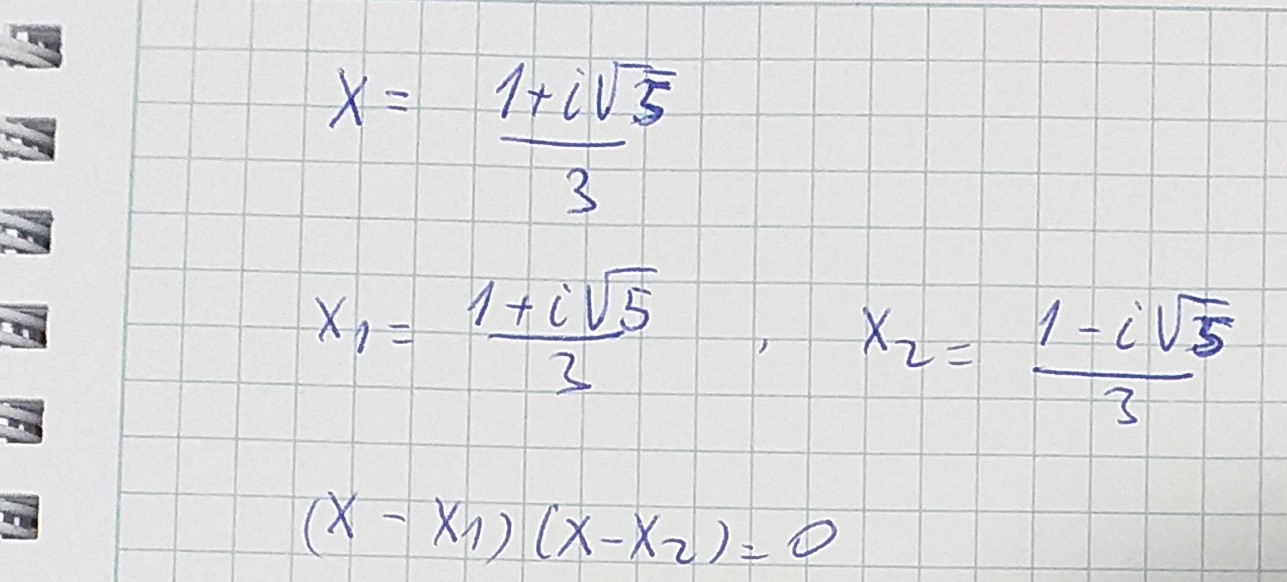 X = (1+i√5)/3
X₁ = (1+i√5)/3 , X₂ = (1-i√5)/3
(X - X₁)(X-X₂)=0